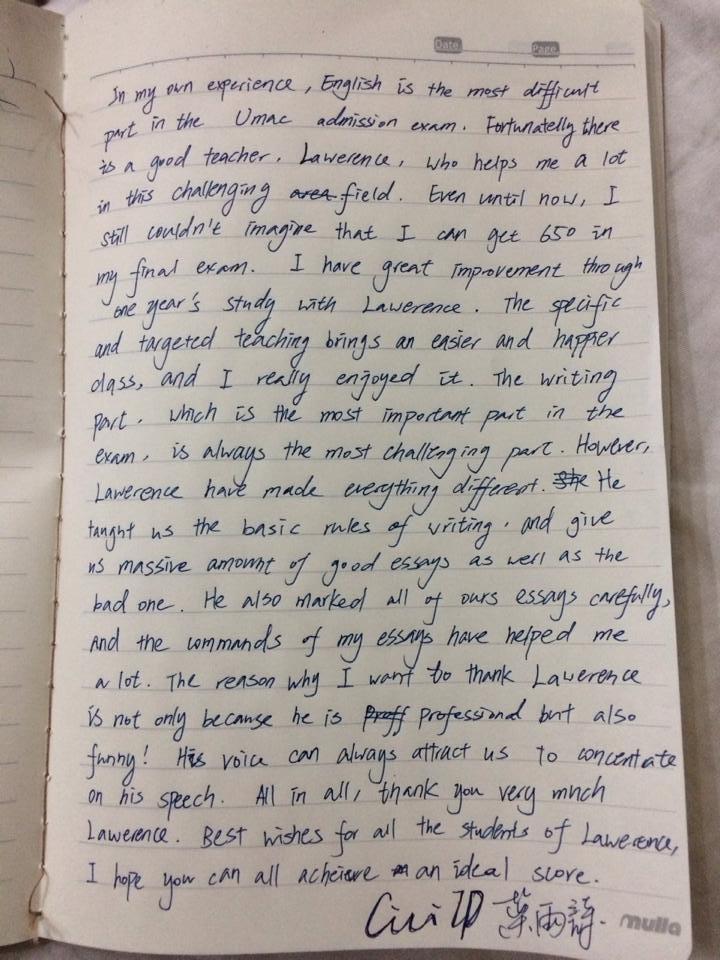 Date
Page
In my own experience, English is the most difficult
part in the Umac admission exam. Fortunatelly there
is a good teacher. Lawerence, who helps me a lot
in this challenging area field. Even until now, I
still couldn't imagine that I can get 650 in
my final exam. I have great improvement through
one year's study with Lawerence. The specific
and targeted teaching brings an easier and happier
class, and I really enjoyed it. The writing
part. which is the most important part in the
exam, is always the most challenging part. However,
Lawerence have made everything different. She He
taught us the basic rules of writing. and give
us massive amount of good essays as well as the
bad one. He also marked all of ours essays carefully,
And the commands of my essays have helped me
a lot. The reason why I want to thank Lawerence
is not only because he is proff professional but also
funny! His voice can always attract us to concentrate
on his speech. All in all, thank you very much
Lawerence. Best wishes for all the students of Lawerence,
I hope you can all acheieve an ideal score.
葉雨詩.
mulla